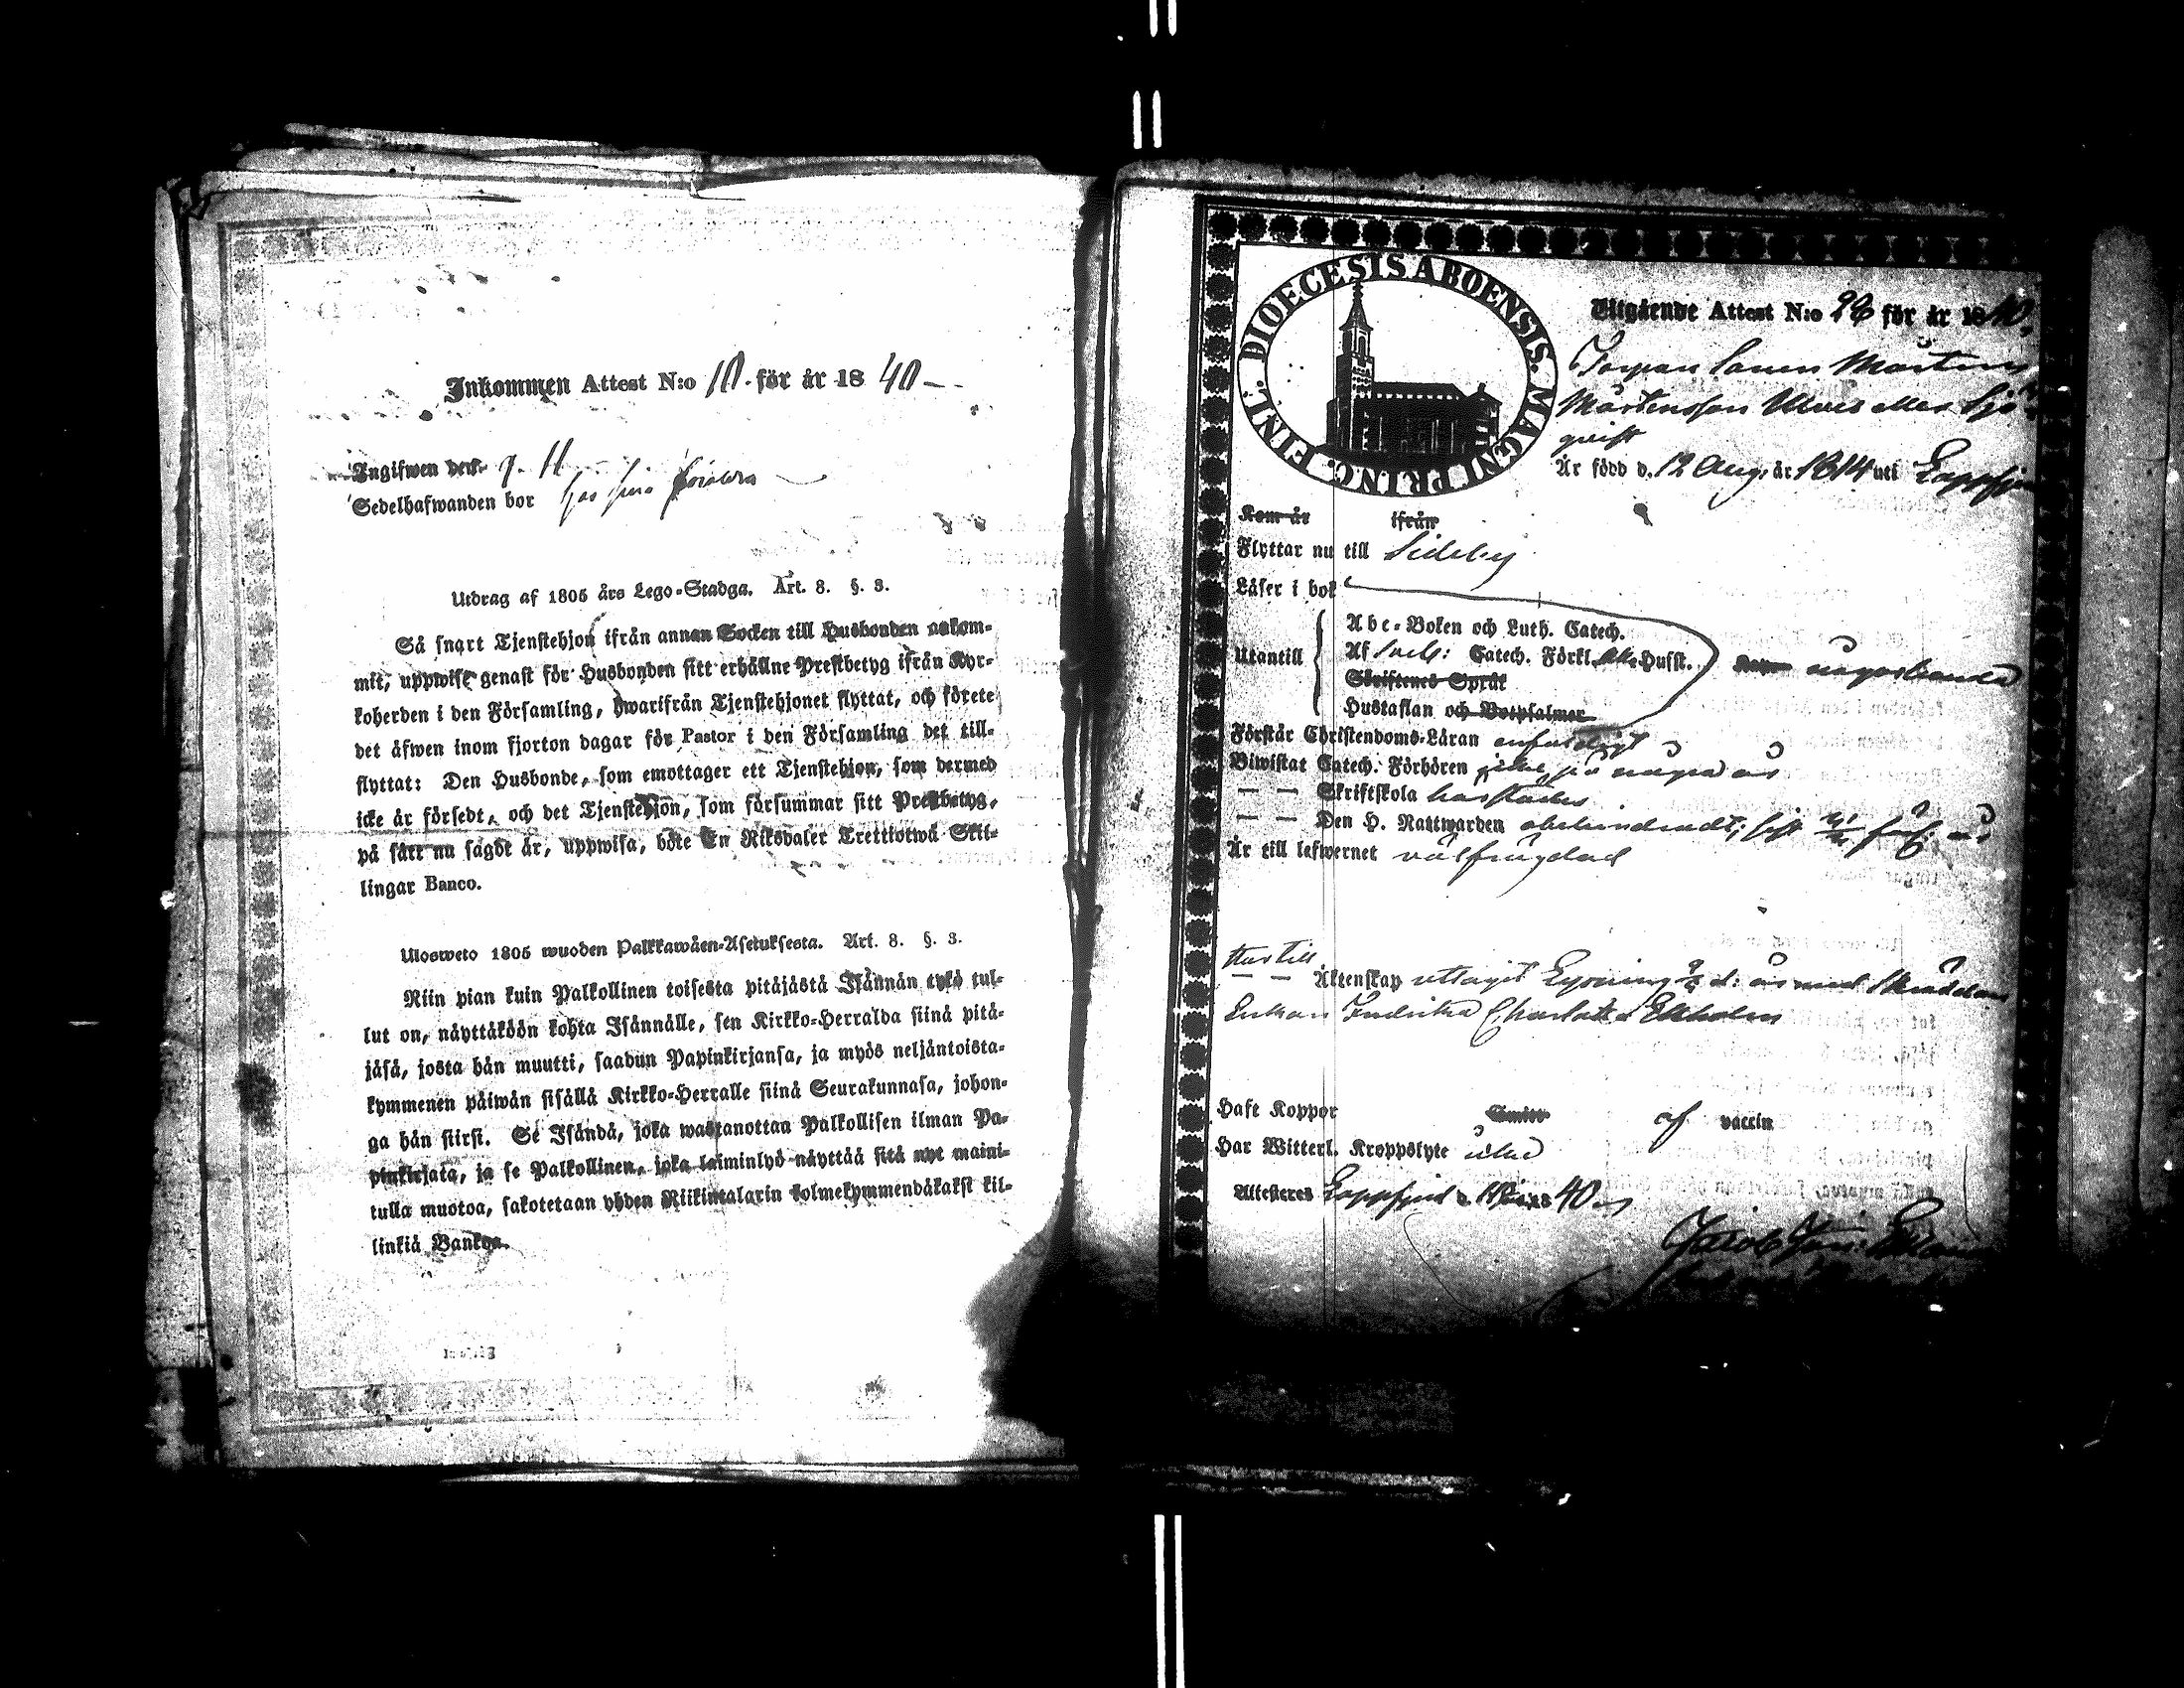 Inkommen Attest N:o 10. för år 1840 —
Ingifwen den
Sedelhafwanden bor hos sina föräldrar
Utdrag af 1805 års Lego-Stadga. Art. 8. §. 3.
Så snart Tjenstehjon ifrån annan Socken till Husbonden ankom-
mit, uppwise genast för Husbonden sitt erhållne Prestbetyg ifrån Kyr-
koherden i den Församling, hwarifrån Tjenstehjonet flyttat, och förete
det äfwen inom fjorton dagar för Pastor i den Församling det till-
flyttat: Den Husbonde, som emottager ett Tjenstehjon, som dermed
icke är försedt, och det Tjenstehjon, som försummar sitt Prestbetyg,
på sätt nu sagdt är, uppwisa, böte En Riksdaler Trettiotwå Skil-
lingar Banco.
Ulosweto 1805 wuoden Palkkawäen-Asetuksesta. Art. 8. §. 3.
Niin pian kuin Palkollinen toisesta pitäjästä Isännän tykö tul-
lut on, näyttäköön kohta Isännälle, sen Kirkko-Herralda siinä pitä-
jäsä, josta hän muutti, saadun Papinkirjansa, ja myös neljäntoista-
kymmenen päiwän sisällä Kirkko-Herralle siinä Seurakunnasa, johon-
ga hän siirsi. Se Isändä, joka wastanottaa Palkollisen ilman Pa-
pinkirjata, ja se Palkollinen, joka laiminlyö näyttää sitä nyt maini-
tulla muotoa, sakotetaan yhden Riikintalarin kolmekymmendäkaksi kil-
linkiä Bankoa.
DIOECESIS ABOENSIS. MAGNI PRINC. FINL.
Utgående Attest N:o 98 för år 1840.
Torpare Sonen Mårten
Mårtensson Ulves eller Sjö-
qvist
Är född d. 12 Aug. år 1814 uti Lappfjerd
Kom år ifrån
Flyttar nu till Sideby
Läser i bok
Utantill
Abc-Boken och Luth. Catech.
Af Catech. Förkl. Husst.
Skriftenes Språk
Hustaflan och Botpsalmer
någorlunda
Förstår Christendoms-Läran enfaldigt
Biwistat Catech. Förhören icke på några år
— — Skriftskola härstädes
— — Den H. Nattwarden obehindradt; sist
Är till lefwernet välfrägdad
Har till
— — Äktenskap uttagit Lysning d: år med Skräddare
Enkan Fredrika Charlotta Ekholm
Haft Koppor af vaccin
Har Witterl. Kroppslyte
Attesteras Lappfjerd d. 1840.
Jacob